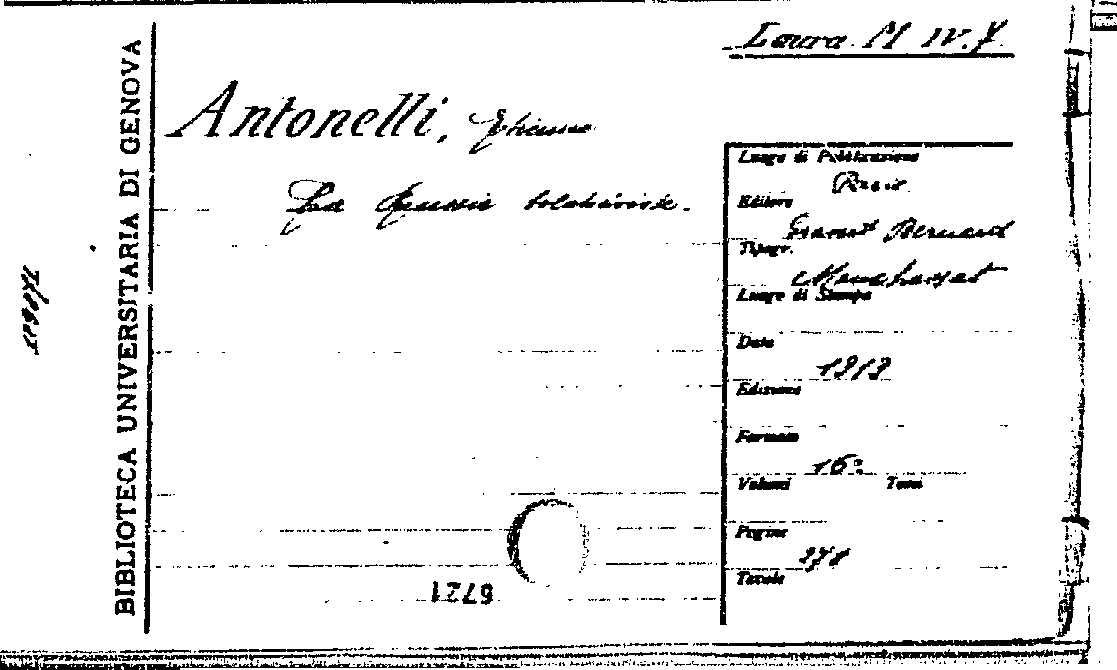 Laura M IV.7.
BIBLIOTECA UNIVERSITARIA DI GENOVA
Antonelli, Etienne
La Russie bolchéviste.
Luogo di Pubblicazione
Paris
Editore
Grasset Bernard
Tipogr.
Luogo di Stampa
Data
1919
Edizione
Formato
16°
Volumi Tomi
Pagine
Tavole
6721